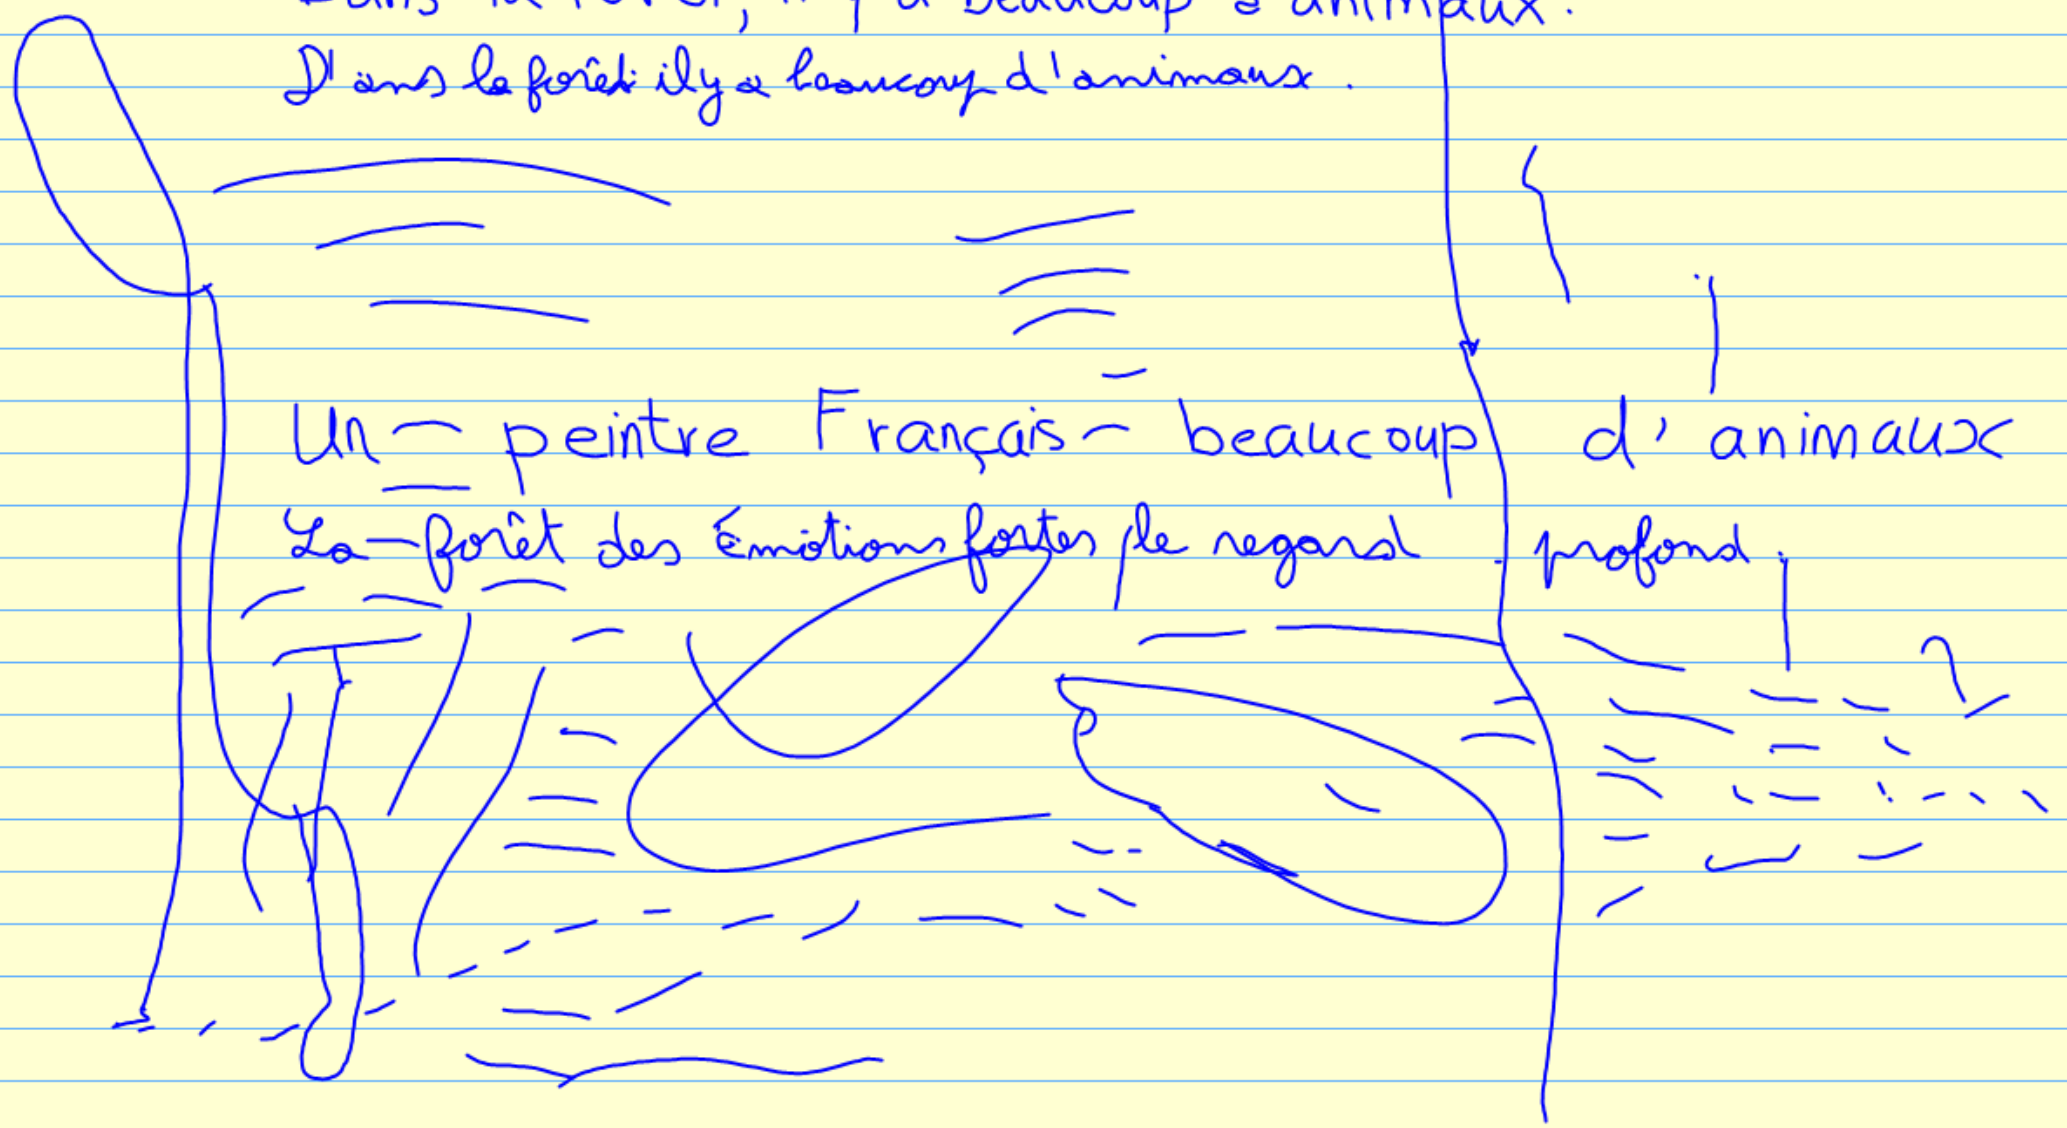 Dans la forêt, il y a beaucoup d'animaux.
D'ans la forêt il y a beaucoup d'animaux.
Un — peintre Français — beaucoup d'animaux
La — forêt des Émotions fortes, le regard profond.